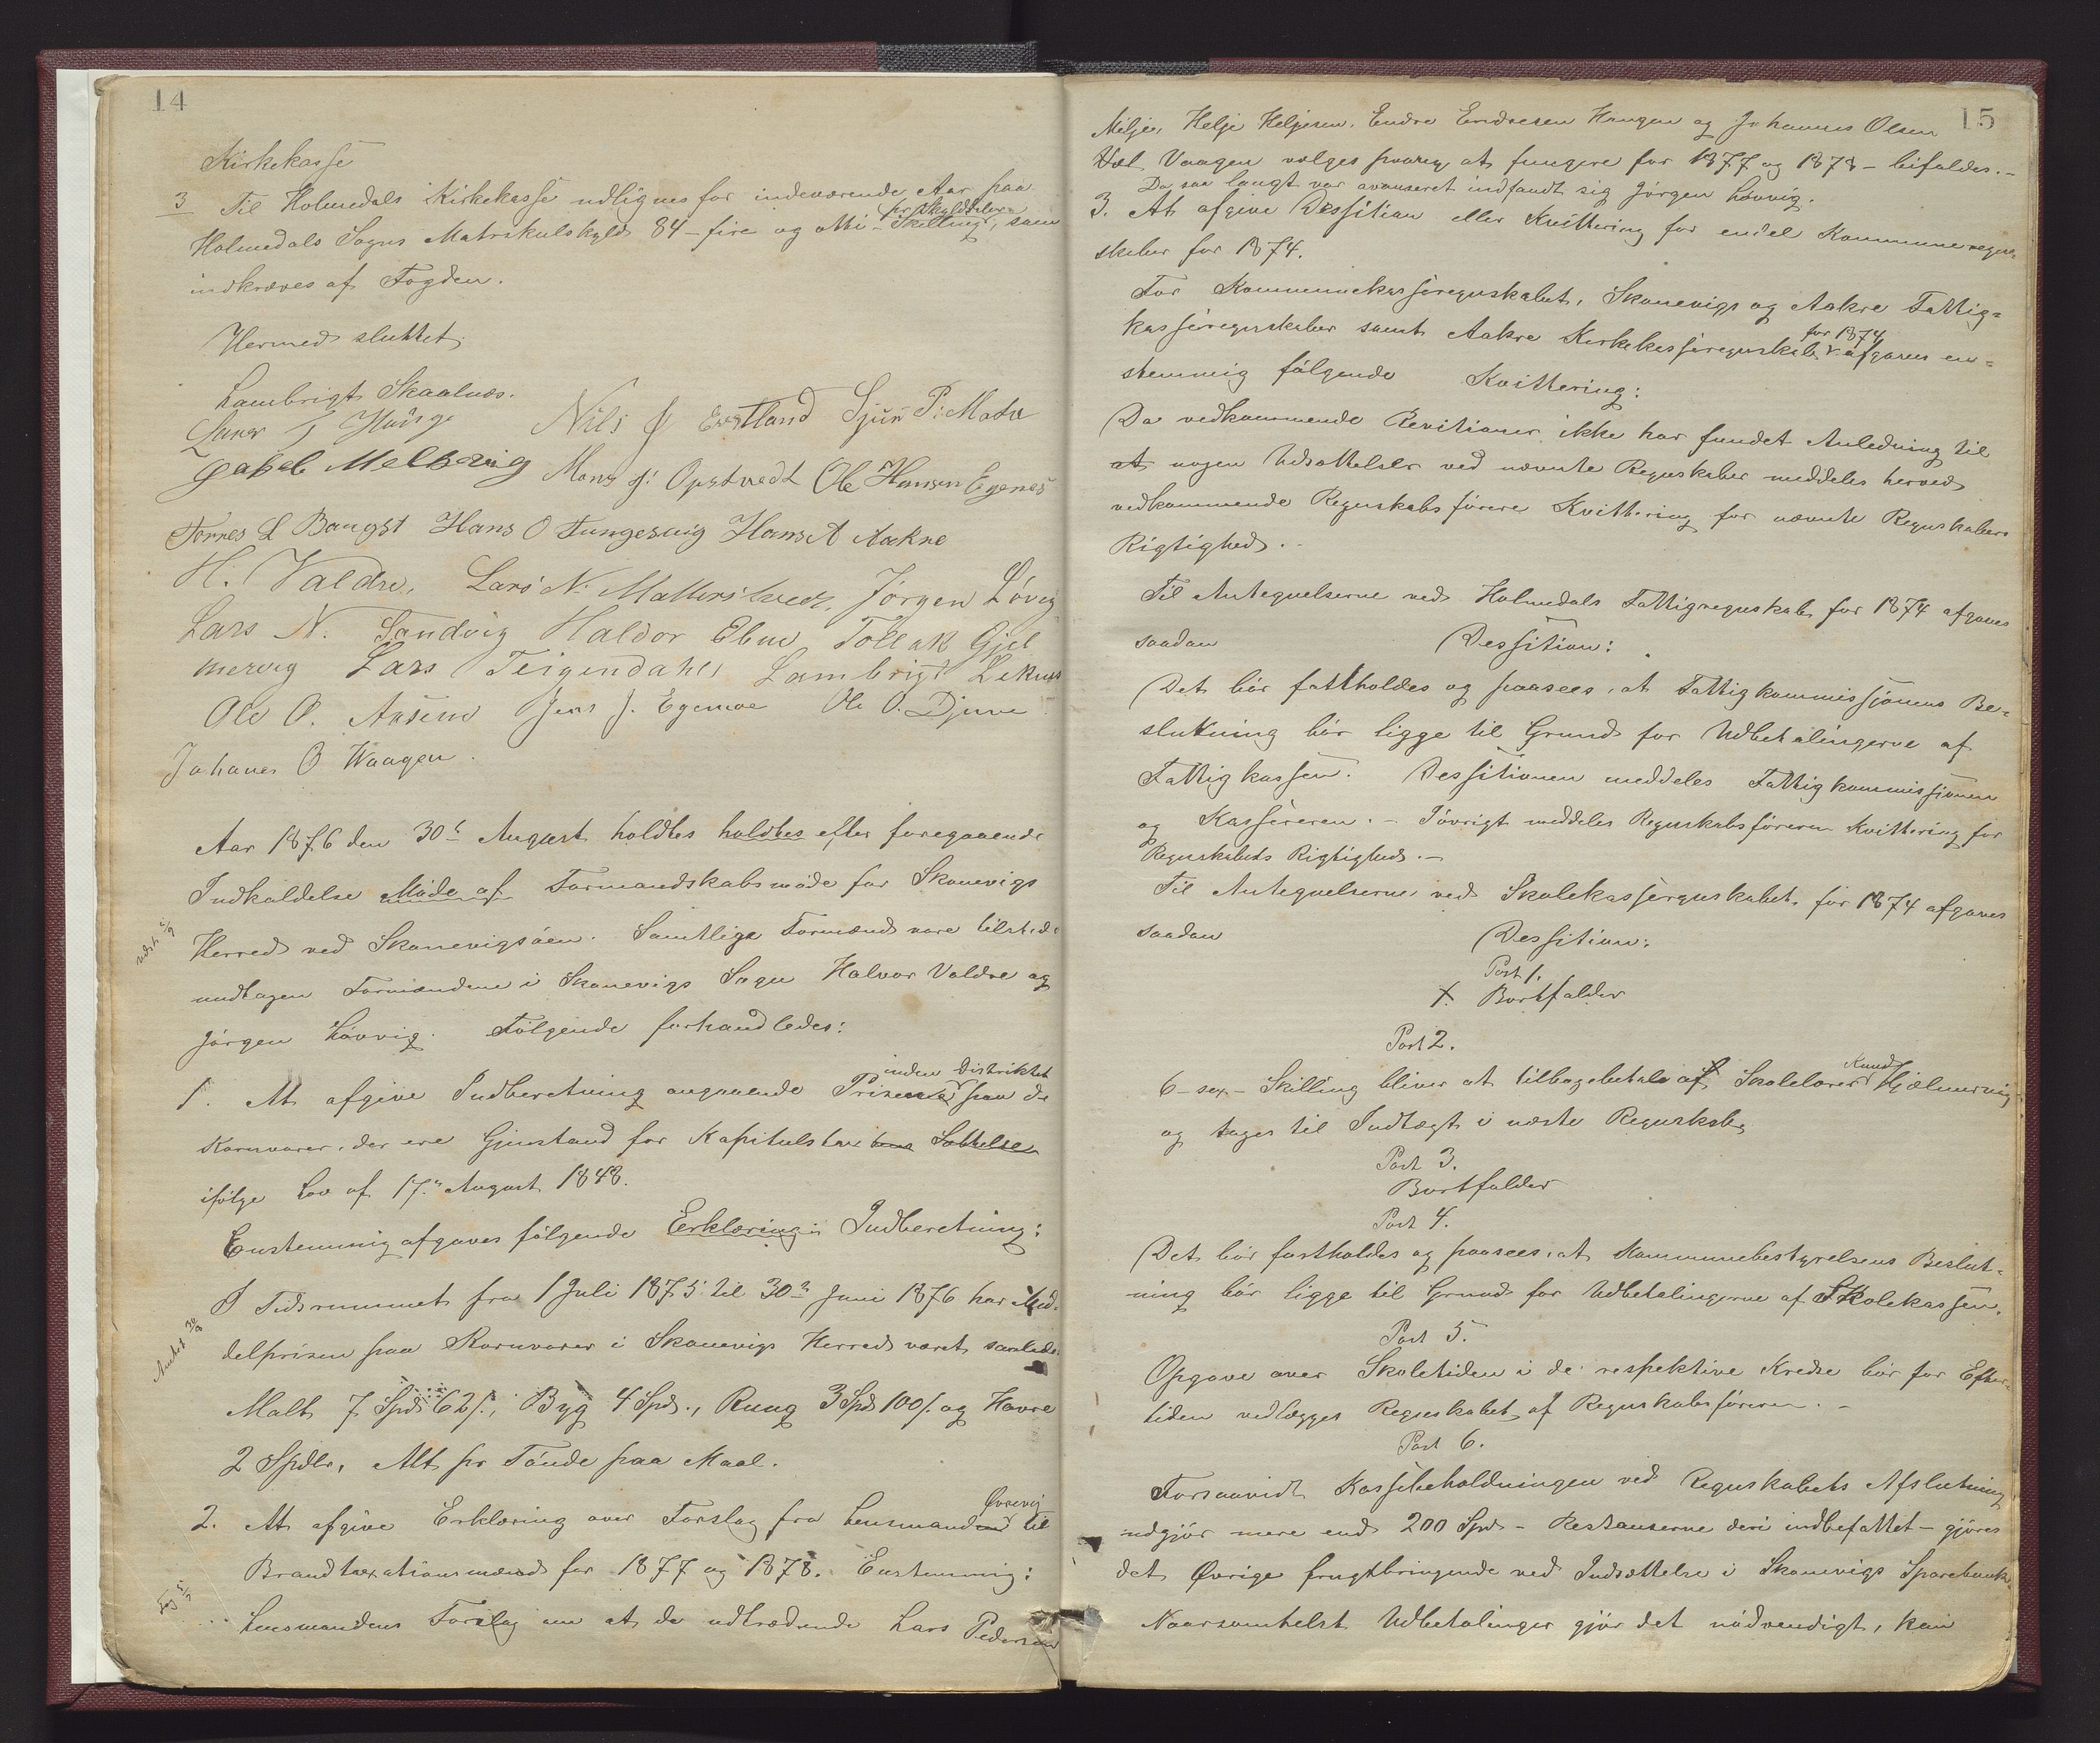 14
Kirkekasse
3 Til Holmedals Kirkekasse udlignes for indeværende Aar paa
Holmedals Sogns Matrikulskyld 84 - fire og otti - Skilling pr Skylddaler, som
indkræves af Fogden.
Hermed sluttet
Lambrigt Skaalnæs.
Nils J Erstland Sjur P. Matre
Mons J: Opstvedt Ole Hansen Egenes
Tørres L Baugst Hans O Tungesvig Hans A Aakre
H. Valdre, Lars N. Jørgen Løvig
Lars N. Sandvig Haldor Ebne Tollak Gjel
mervig Lars Teigendahl Lambrigt Leknes
Ole O. Jens J. Egemoe Ole O. Djune
Johanes O Waagen.
Aar 1876 den 30te August holdtes holdtes efter foregaaende
Indkaldelse Møde af Formandskabsmøde for Skonevigs
Herred ved Skonevigsøen. Samtlige Formænd vare tilstede
undtagen Formændene i Skonevigs Sogn Halvor Valdre og
Jørgen Løvvig. Følgende forhandledes:
1. At afgive Indberetning angaaende Priserne inden Distriktet paa de
Kornvarer, der ere Gjenstand for Kapitulstaxtens Sættelse
ifølge Lov af 17de August 1848.
Enstemmig afgaves følgende Erklæring: Indberetning:
I Tidsrummet fra 1 Juli 1875 til 30te Juni 1876 har Mid-
delprisen paa Kornvarer i Skonevigs Herred været saaledes
Malt 7 Spd 62 s., Byg 4 Spd., Rug 3 Spd 100 s. og Havre
2 Spdlr, Alt pr Tønde paa Maal.
2. At afgive Erklæring over Forslag fra Lensmanden Øvrevig til
Brandtaxationsmænd for 1877 og 1878. Enstemmig:
Lensmandens Forslag om at de udtrædende Lars Pedersen
15
Milje, Helje Heljesen, Endre Endresen Haugen og Johannes Olsen
Vaagen vælges paany at fungere for 1877 og 1878 - bifaldes.-
Da saa langt var avanseret indfandt sig Jørgen Løvvig.
3. At afgive Dessition eller Kvittering for endel Kommuneregn-
skaber for 1874.
For Kommunekasseregnskabet, Skonevigs og Aakre Fattig-
kasseregnskaber samt Aakre Kirkekasseregnskab for 1874 afgaves en-
stemmig følgende Kvittering:
Da vedkommende Revisioner ikke har fundet Anledning til
at nogen Udsættelser ved nævnte Regnskaber meddeles herved
vedkommende Regnskabsførere Kvittering for nævnte Regnskabers
Rigtighed.-
Til Antegnelserne ved Holmedals Fattigregnskab for 1874 afgaves
saadan Dessition:
Det bør fastholdes og paasees, at Fattigkommissjonens Be-
slutning bør ligge til Grund for Udbetalingerne af
Fattigkassen. Dessitionen meddeles Fattigkommissjonen
og Kassereren.- Iøvrigt meddeles Regnskabsføreren Kvittering for
Regnskabets Rigtighed.-
Til Antegnelserne ved Skolekasseregnskabet for 1874 afgaves
saadan Dessition:
Post 1.
Bortfalder
Post 2.
6 - sex - Skilling bliver at tilbagebetale af Skolelærer Knud Gjælmervig
og tages til Indtægt i næste Regnskab
Post 3.
Bortfalder
Post 4.
Det bør fastholdes og paasees, at Kommunebestyrelsens Beslut-
ning bør ligge til Grund for Udbetalingerne af Skolekassen.
Post 5.
Opgave over Skoletiden i de respektive Kredse bør for Efter-
tiden vedlægges Regnskabet af Regnskabsføreren.-
Post 6.
Forsaavidt Kassebeholdningen ved Regnskabets Afslutning
udgjør mere end 200 Spd - Restanserne deri indbefattet - gjøres
det Øvrige frugtbringende ved Indsættelse i Skonevigs Sparebank.
Naarsomhelst Udbetalinger gjør det nødvendigt, kan